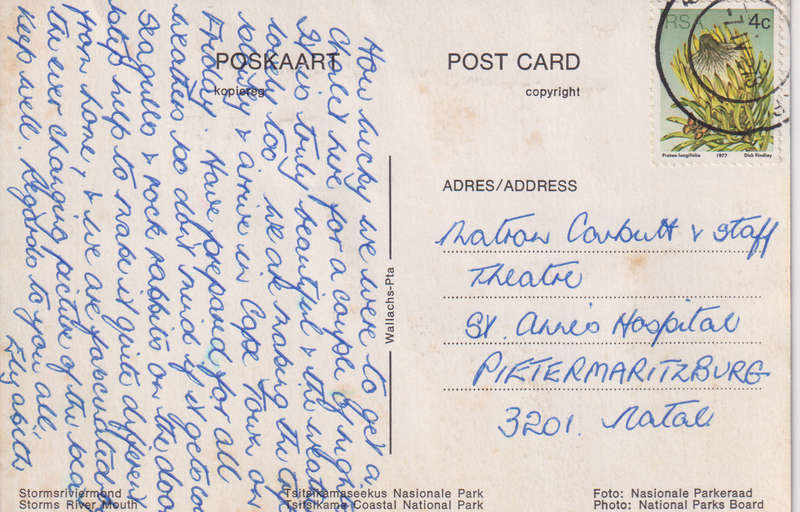 POSKAART
kopiereg
POST CARD
copyright
RSA 4c
Protea longifolia 1977 Dick Findlay
How lucky we were to get a
Chalet here for a couple of nights
It is truly beautiful & the weather
lovely too. We are making the trip
slowly & arrive in Cape Town on
Friday. Have prepared for all
weather so don't mind if it gets cold
Seagulls & rock rabbits on the door
step help to make it quite different
from home, & we are fascinated by
the ever changing picture of the sea
Keep well. Regards to you all.
Elizabeth
Wallachs-Pta
ADRES/ADDRESS
Matron Corbutt & Staff
Theatre
St. Anne's Hospital
PIETERMARITZBURG
3201. Natal
Stormsriviermond
Storms River Mouth
Tsitsikamaseekus Nasionale Park
Tsitsikama Coastal National Park
Foto: Nasionale Parkeraad
Photo: National Parks Board